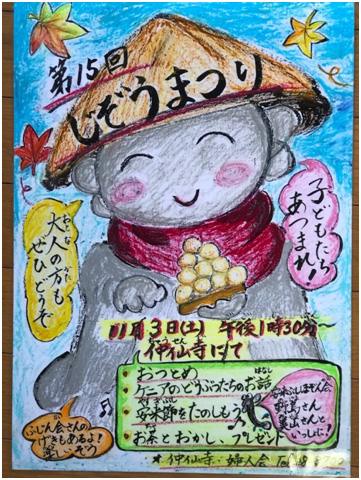 第15回
じぞうまつり
子どもたち
あつまれ!
おとな かた
大人の方も
ぜひどうぞ
11月3日(土) 午後1時30分〜
仲仙寺にて
・おつとめ
はなし
・ケニアのどうぶつたちのお話
やすぎぶし
・安来節をたのしもう
・お茶とおかし、プレゼント
さんと
いっしょに!
ふじん会さんの
げきもあるよ!
楽しいぞう
仲仙寺・婦人会